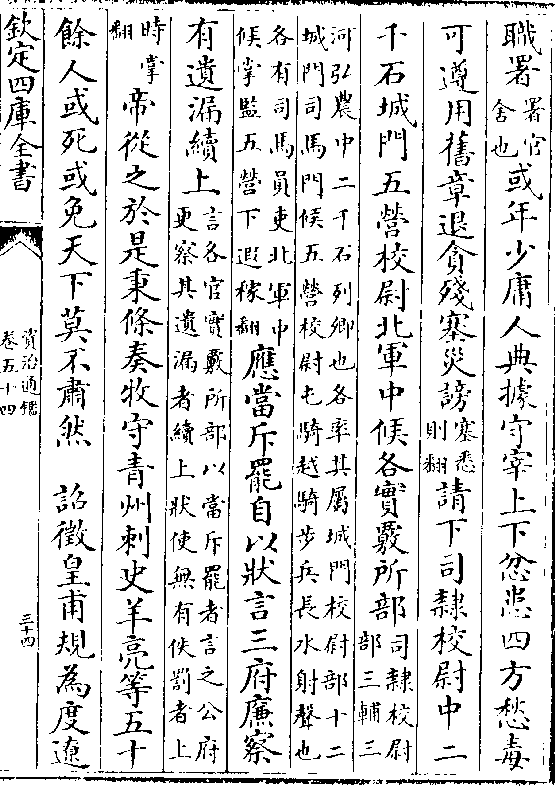 職署署官舍也或年少庸人典據守宰上下忿患四方愁毒
可遵用舊章退貪殘塞災謗塞悉則翻請下司隸校尉中二
千石城門五營校尉北軍中候各實覈所部司隸校尉部三輔三
河弘農中二千石列卿也各率其屬城門校尉部十二
城門司馬門候五營校尉屯騎越騎步兵長水射聲也
各有司馬員吏北軍中
候掌監五營下遐稼翻應當斥罷自以狀言三府廉察
有遺漏續上言各官實覈所部以當斥罷者言之公府
更察其遺漏者續上狀使無有佚罰者上
時掌翻帝從之於是秉條奏牧守青州刺史羊亮等五十
餘人或死或免天下莫不肅然　詔徵皇甫規為度遼
欽定四庫全書
資治通鑑
卷五十四
三十四